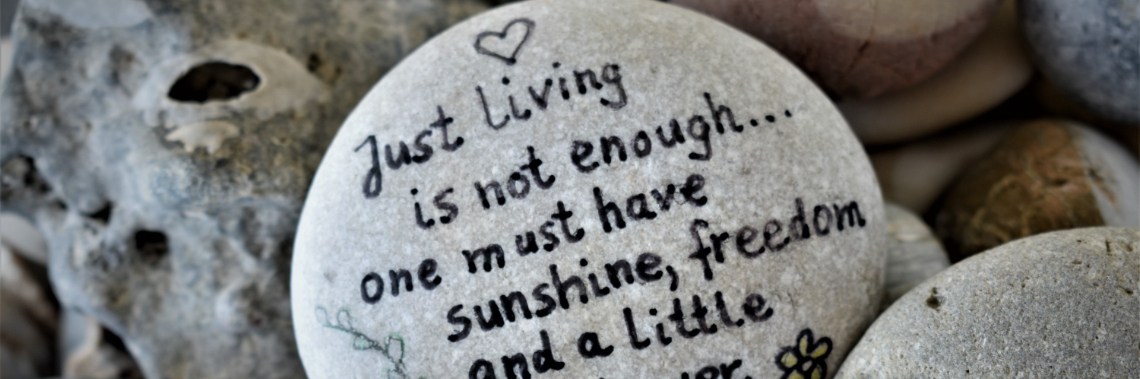 Just living
is not enough...
one must have
sunshine, freedom
and a little